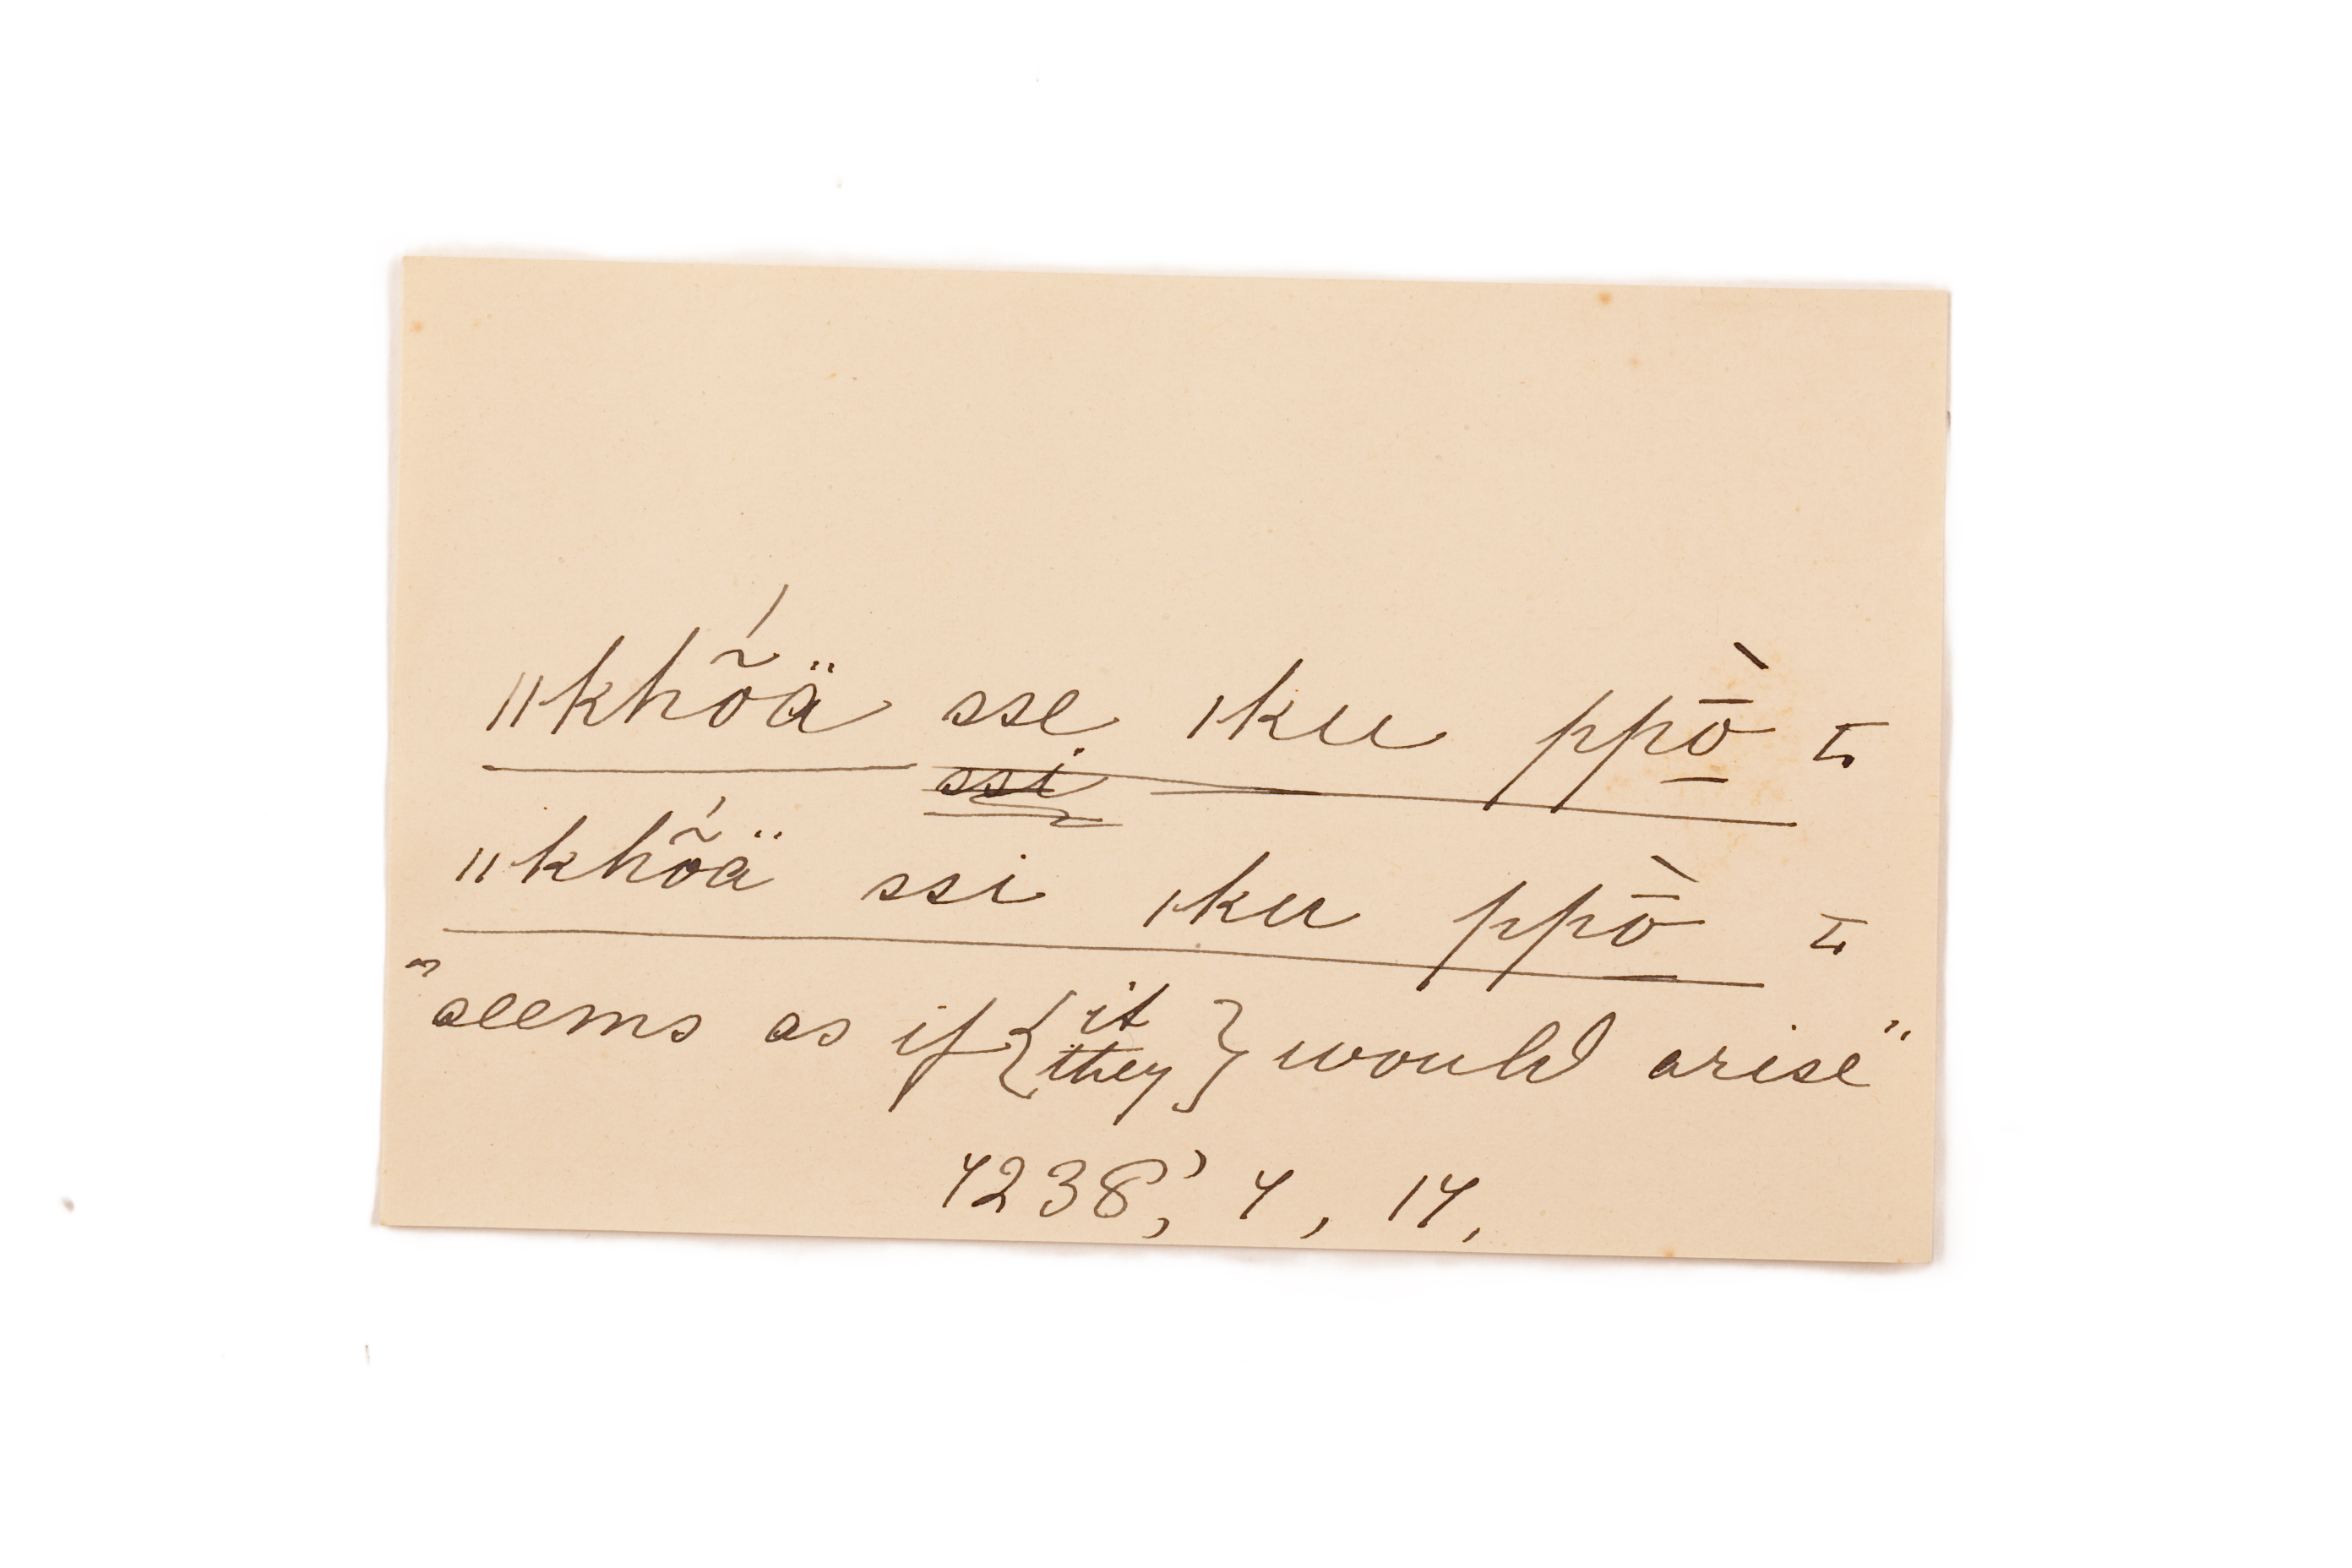 ǁkhṍä sse ǀku ppṑ̠ I.
~~ssi~~
ǁkhṍä ssi ǀku ppṑ̠ I.
"seems as if { it
they } would arise"
4238,' 4, 14.